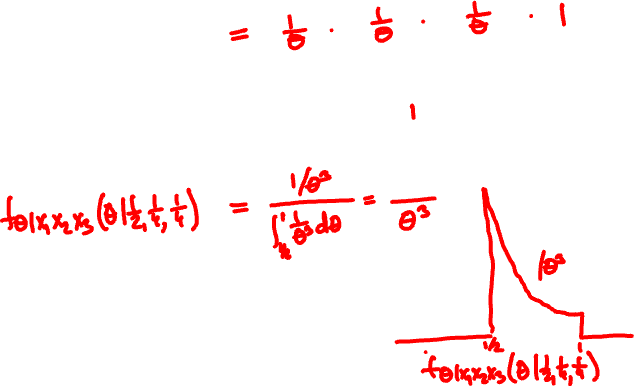 = 1/θ · 1/θ · 1/θ · 1
1
fθ|x₁x₂x₃(θ|½,¼,¼) = (1/θ³)/(∫_{1/2}^{1} 1/θ³ dθ) = /θ³
/θ³
1/2 1
fθ|x₁x₂x₃(θ|½,¼,¼)